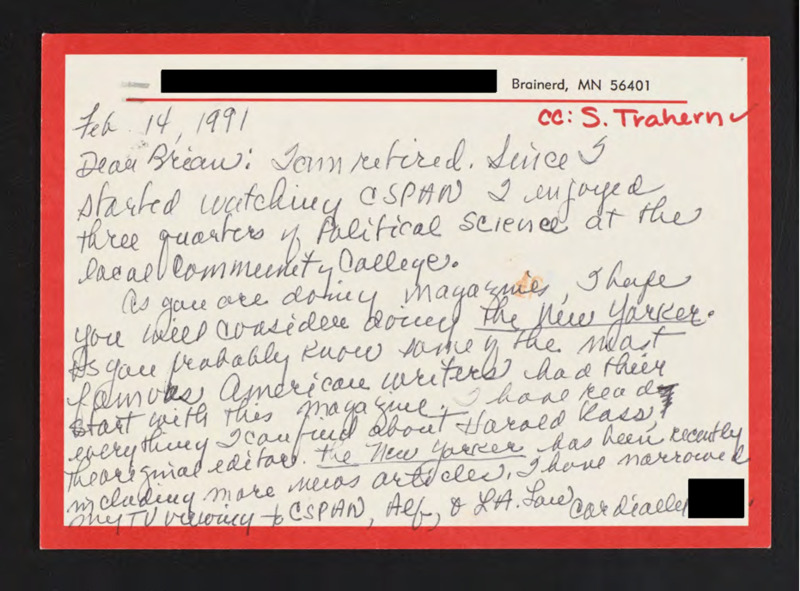 Brainerd, MN 56401
cc: S. Trahern ✓
Feb. 14, 1991
Dear Brian: I am retired. Since I
started watching CSPAN I enjoyed
three quarters of Political Science at the
local Community College.
As you are doing magazines, I hope
you will consider doing The New Yorker.
As you probably know some of the most
famous American writers had their
start with this magazine. I have read
everything I can find about Harold Ross,
the original editor. The New Yorker has been recently
including more news articles. I have narrowed
my TV viewing to CSPAN, Alf, & LA. Law Cordially